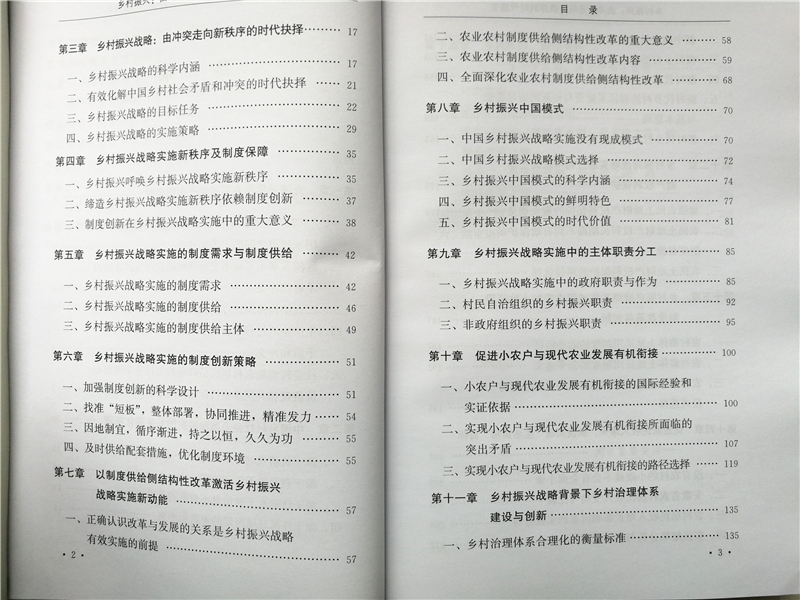 乡村振兴：由
第三章 乡村振兴战略：由冲突走向新秩序的时代抉择 ……… 17
一、乡村振兴战略的科学内涵 ……… 17
二、有效化解中国乡村社会矛盾和冲突的时代抉择 ……… 21
三、乡村振兴战略的目标任务 ……… 22
四、乡村振兴战略的实施策略 ……… 29
第四章 乡村振兴战略实施新秩序及制度保障 ……… 35
一、乡村振兴呼唤乡村振兴战略实施新秩序 ……… 35
二、缔造乡村振兴战略实施新秩序依赖制度创新 ……… 37
三、制度创新在乡村振兴战略实施中的重大意义 ……… 38
第五章 乡村振兴战略实施的制度需求与制度供给 ……… 42
一、乡村振兴战略实施的制度需求 ……… 42
二、乡村振兴战略实施的制度供给 ……… 46
三、乡村振兴战略实施的制度供给主体 ……… 49
第六章 乡村振兴战略实施的制度创新策略 ……… 51
一、加强制度创新的科学设计 ……… 51
二、找准“短板”，整体部署，协同推进，精准发力 ……… 54
三、因地制宜，循序渐进，持之以恒，久久为功 ……… 55
四、及时供给配套措施，优化制度环境 ……… 55
第七章 以制度供给侧结构性改革激活乡村振兴
战略实施新动能 ……… 57
一、正确认识改革与发展的关系是乡村振兴战略
有效实施的前提 ……… 57
· 2 ·
目 录
二、农业农村制度供给侧结构性改革的重大意义 ……… 58
三、农业农村制度供给侧结构性改革内容 ……… 59
四、全面深化农业农村制度供给侧结构性改革 ……… 68
第八章 乡村振兴中国模式 ……… 70
一、中国乡村振兴战略实施没有现成模式 ……… 70
二、中国乡村振兴战略模式选择 ……… 72
三、乡村振兴中国模式的科学内涵 ……… 74
四、乡村振兴中国模式的鲜明特色 ……… 77
五、乡村振兴中国模式的时代价值 ……… 81
第九章 乡村振兴战略实施中的主体职责分工 ……… 85
一、乡村振兴战略实施中的政府职责与作为 ……… 85
二、村民自治组织的乡村振兴职责 ……… 92
三、非政府组织的乡村振兴职责 ……… 95
第十章 促进小农户与现代农业发展有机衔接 ……… 100
一、小农户与现代农业发展有机衔接的国际经验和
实证依据 ……… 100
二、实现小农户与现代农业发展有机衔接所面临的
突出矛盾 ……… 107
三、实现小农户与现代农业发展有机衔接的路径选择 ……… 119
第十一章 乡村振兴战略背景下乡村治理体系
建设与创新 ……… 135
一、乡村治理体系合理化的衡量标准 ……… 135
· 3 ·